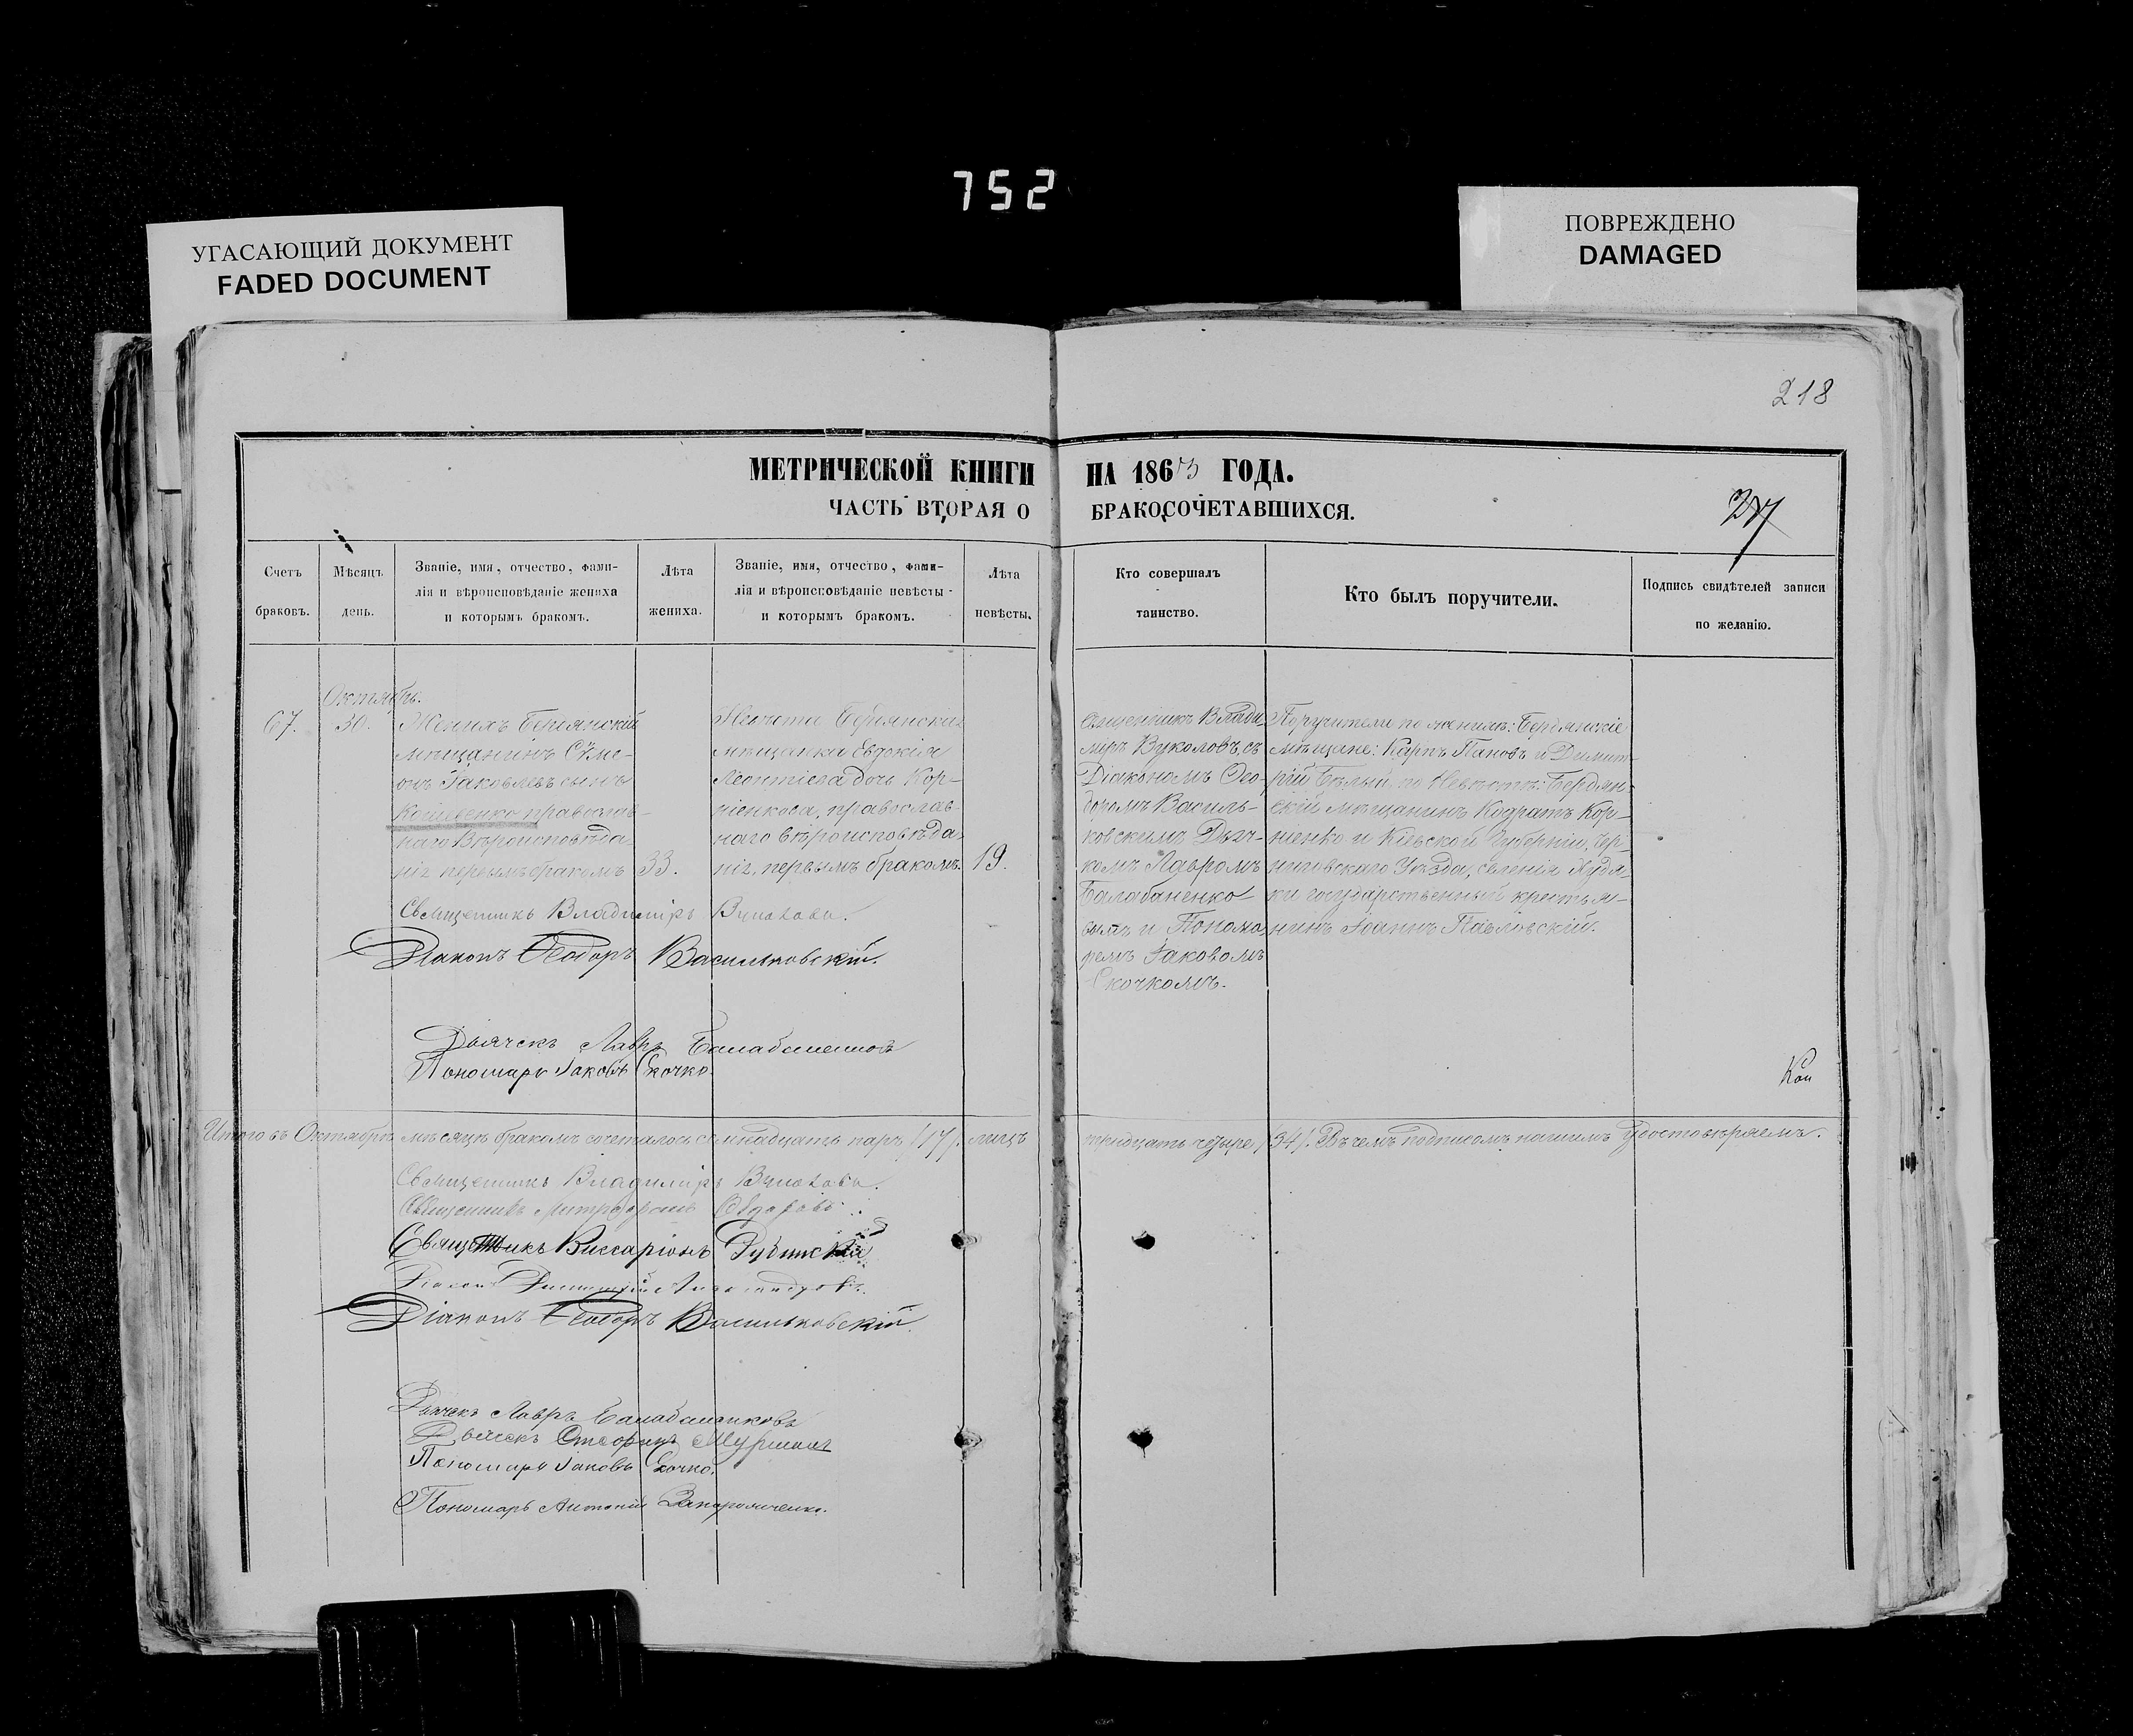 752
УГАСАЮЩИЙ ДОКУМЕНТ
FADED DOCUMENT
ПОВРЕЖДЕНО
DAMAGED
218
МЕТРИЧЕСКОЙ КНИГИ НА 1863 ГОДА.
ЧАСТЬ ВТОРАЯ О БРАКОСОЧЕТАВШИХСЯ.
Счетъ
браковъ.
Мѣсяцъ
день.
Званіе, имя, отчество, фами-
лія и вѣроисповѣданіе жениха
и которымъ бракомъ.
Лѣта
жениха.
Званіе, имя, отчество, фами-
лія и вѣроисповѣданіе невѣсты
и которымъ бракомъ.
Лѣта
невѣсты.
Кто совершалъ
таинство.
Кто былъ поручители.
Подпись свидѣтелей записи
по желанію.
67.
Октябрь.
30.
Женихъ Бердянскій
мѣщанинъ Сѵме-
онъ Іаковлевъ сынъ
православ-
наго Вѣроисповѣда-
нія первымъ бракомъ
33.
Невѣста Бердянская
мѣщанка Евдокія
Леонтіева дочь Кор-
ніенкова, православ-
наго вѣроисповѣда-
нія, первымъ бракомъ.
19.
Священникъ Влади-
міръ Вуколовъ, съ
Діакономъ Ѳео-
доромъ Василь-
ковскимъ Дьяч-
комъ Лавромъ
Балабаненко-
вымъ и Понома-
ремъ Іаковомъ
Скочкомъ.
Поручители по женихѣ: Бердянскіе
мѣщане: Карпъ Пановъ и Димит-
рій Бѣлый, по Невѣстѣ: Бердян-
скій мѣщанинъ Кодратъ Кор-
ніенко и Кіевской Губерніи,
Уѣзда, селенія
государственный крестья-
нинъ Іоаннъ Павловскій.
Священникъ Владиміръ Вуколовъ.
Діаконъ Ѳеодоръ Васильковскій.
Дьячекъ Лавръ Балабаненковъ
Пономарь Іаковъ Скочко.
Итого въ Октябрѣ мѣсяцѣ бракомъ сочеталось семнадцать паръ /17/. лицъ тридцать четыре /34/. Въ чемъ подписомъ нашимъ удостовѣряемъ.
Священникъ Владиміръ Вуколовъ.
Священникъ Митрофанъ
Священникъ Виссаріонъ
Діаконъ Димитрій
Діаконъ Ѳеодоръ Васильковскій.
Дьячекъ Лавръ Балабаненковъ
Дьячекъ
Пономарь Іаковъ Скочко.
Пономарь Антоній